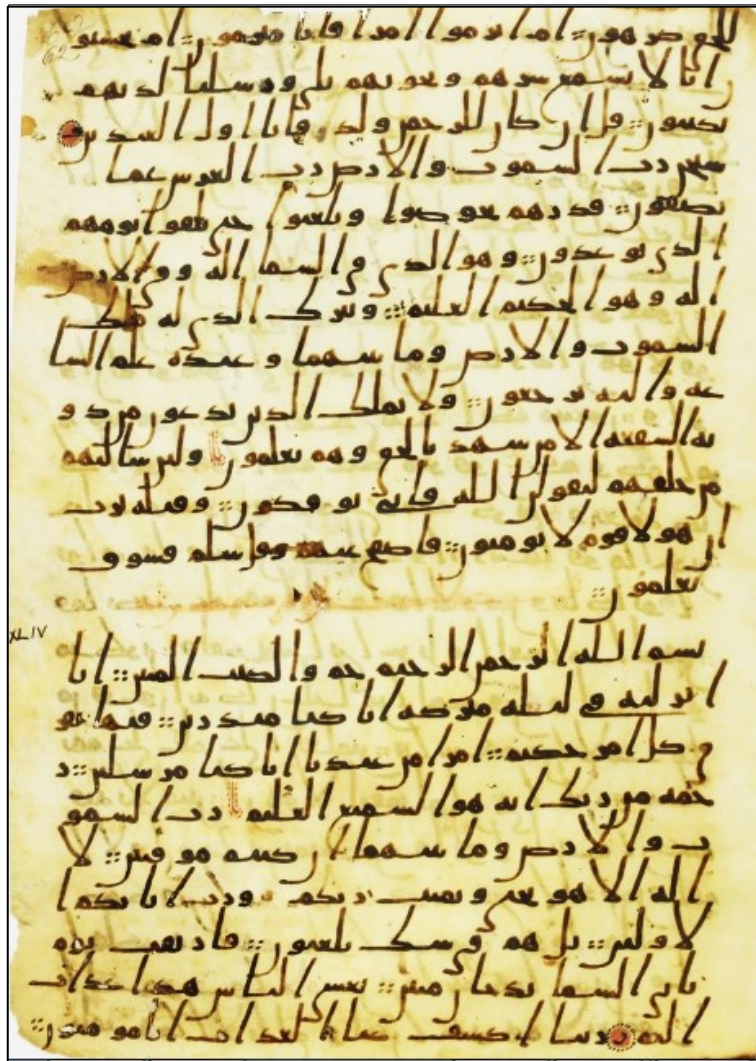 62
للحق كرهون ام ابرموا امرا فانا مبرمون ام يحسبو
ن انا لا نسمع سرهم ونجويهم بلى ورسلنا لديهم
يكتبون قل ان كان للرحمن ولد فانا اول العبدين
سبحن رب السموت والارض رب العرش عما
يصفون فذرهم يخوضوا ويلعبوا حتى يلقوا يومهم
الذي يوعدون وهو الذي في السما اله وفي الارض
اله وهو الحكيم العليم وتبرك الذي له ملك
السموت والارض وما بينهما وعنده علم السا
عه واليه ترجعون ولا يملك الذين يدعون من دو
نه الشفعه الا من شهد بالحق وهم يعلمون ولين سالتهم
من خلقهم ليقولن الله فانى يوفكون وقيله يرب
ان هولا قوم لا يومنون فاصفح عنهم وقل سلم فسوف
تعلمون
XLIV
بسم الله الرحمن الرحيم حم والكتب المبين انا
انزلنه في ليله مبركه انا كنا منذرين فيها يفر
ق كل امر حكيم امرا من عندنا انا كنا مرسلين ر
حمه من ربك انه هو السميع العليم رب السمو
ت والارض وما بينهما ان كنتم موقنين لا
اله الا هو يحي ويميت ربكم ورب ابايكم ا
لاولين بل هم في شك يلعبون فارتقب يوم
تاتي السما بدخان مبين يغشى الناس هذا عذاب
اليم ربنا اكشف عنا العذاب انا مومنون